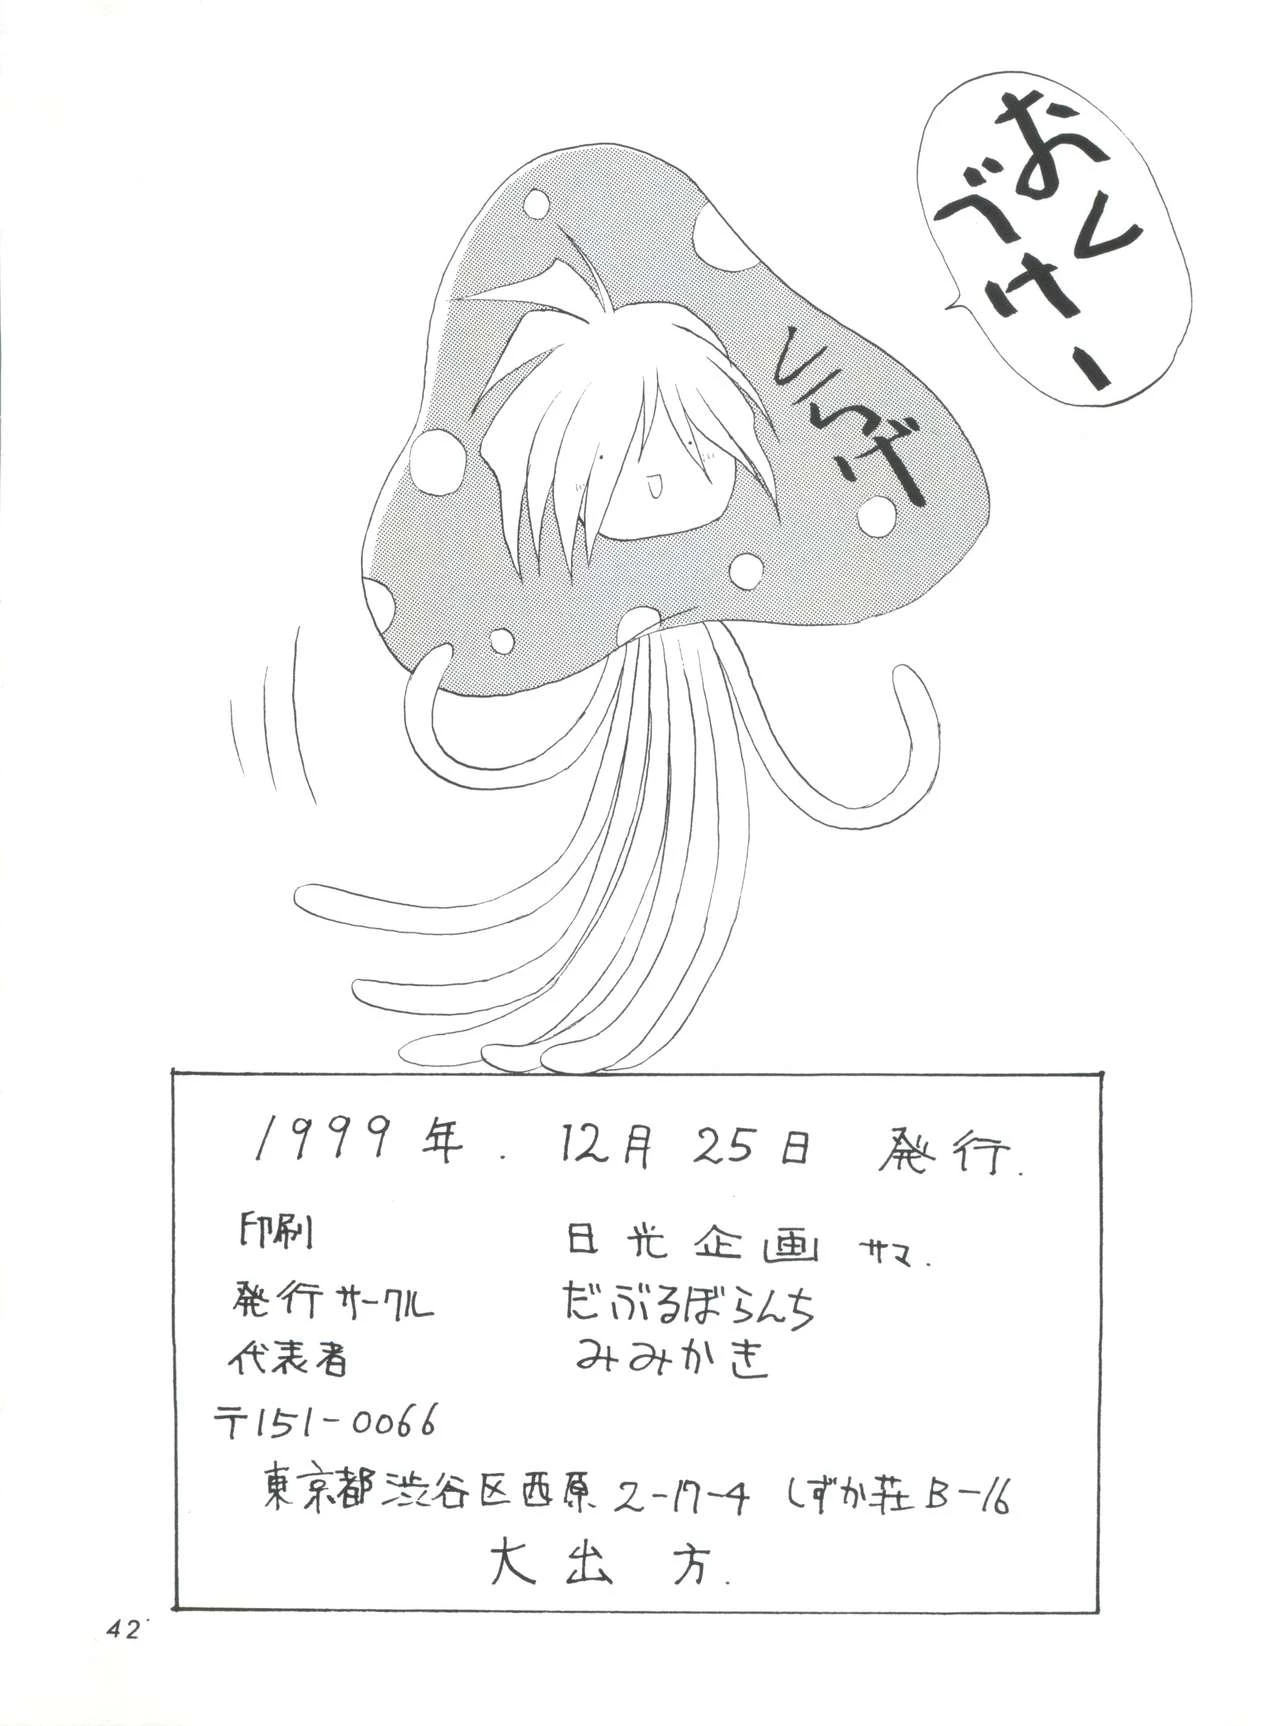 おくべけー
しいげ
1999年. 12月25日 発行.
印刷 日光企画 サマ.
発行サークル だぶるぼらんち
代表者 みみかき
〒151-0066
東京都渋谷区西原2-17-4 しずか荘B-16
大出 方.
42